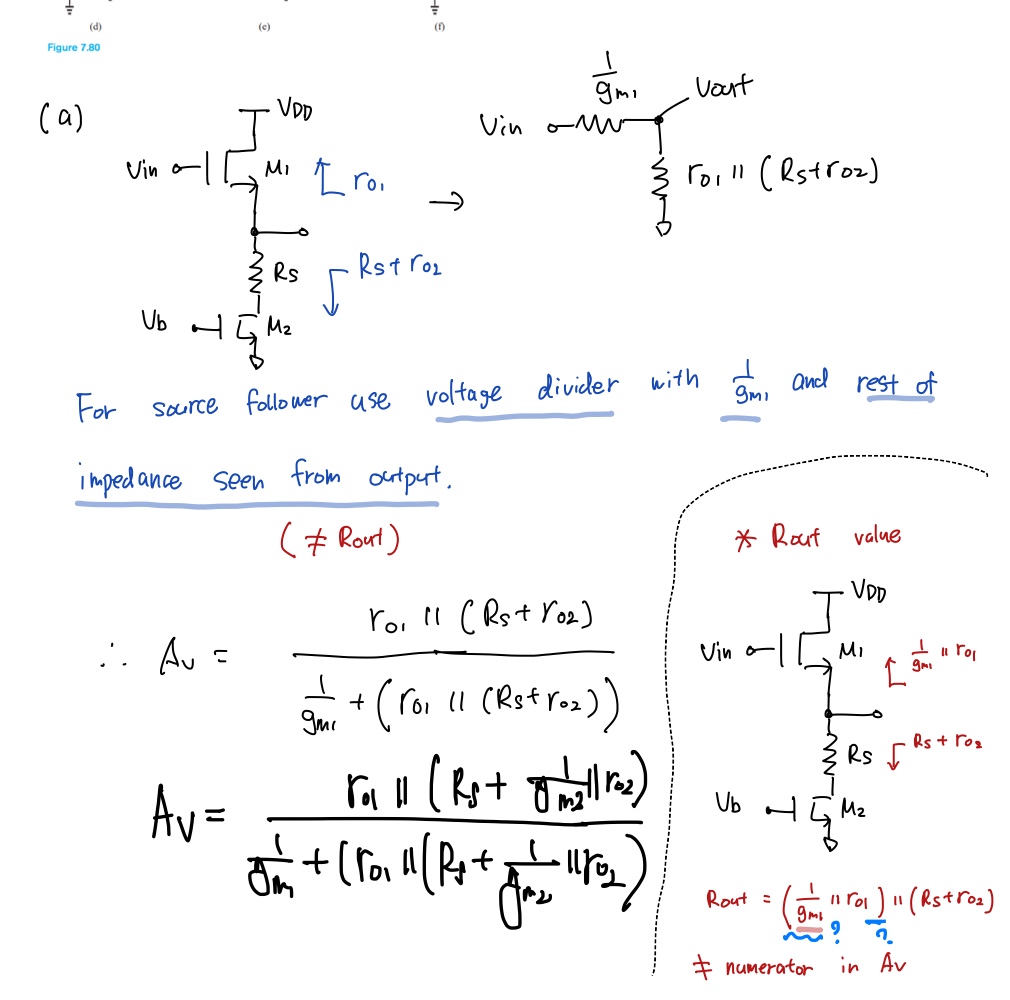 (d) (e) (f)
Figure 7.80
(a)
VDD
Vin M1 ro1
Rs Rs+ ro2
Vb M2
→
1/gm1 Vout
Vin
ro1 || (Rs+ro2)
For source follower use voltage divider with 1/gm1 and rest of
impedance seen from output.
(≠ Rout)
∴ Av = ro1 || (Rs+ro2) / 1/gm1 + (ro1 || (Rs+ro2))
Av = ro1 || (Rs + 1/gm2 || ro2) / 1/gm1 + (ro1 || (Rs + 1/gm2 || ro2)
* Rout value
VDD
Vin M1 1/gm1 || ro1
Rs Rs + ro2
Vb M2
Rout = (1/gm1 || ro1) || (Rs+ro2)
? ?
≠ numerator in Av